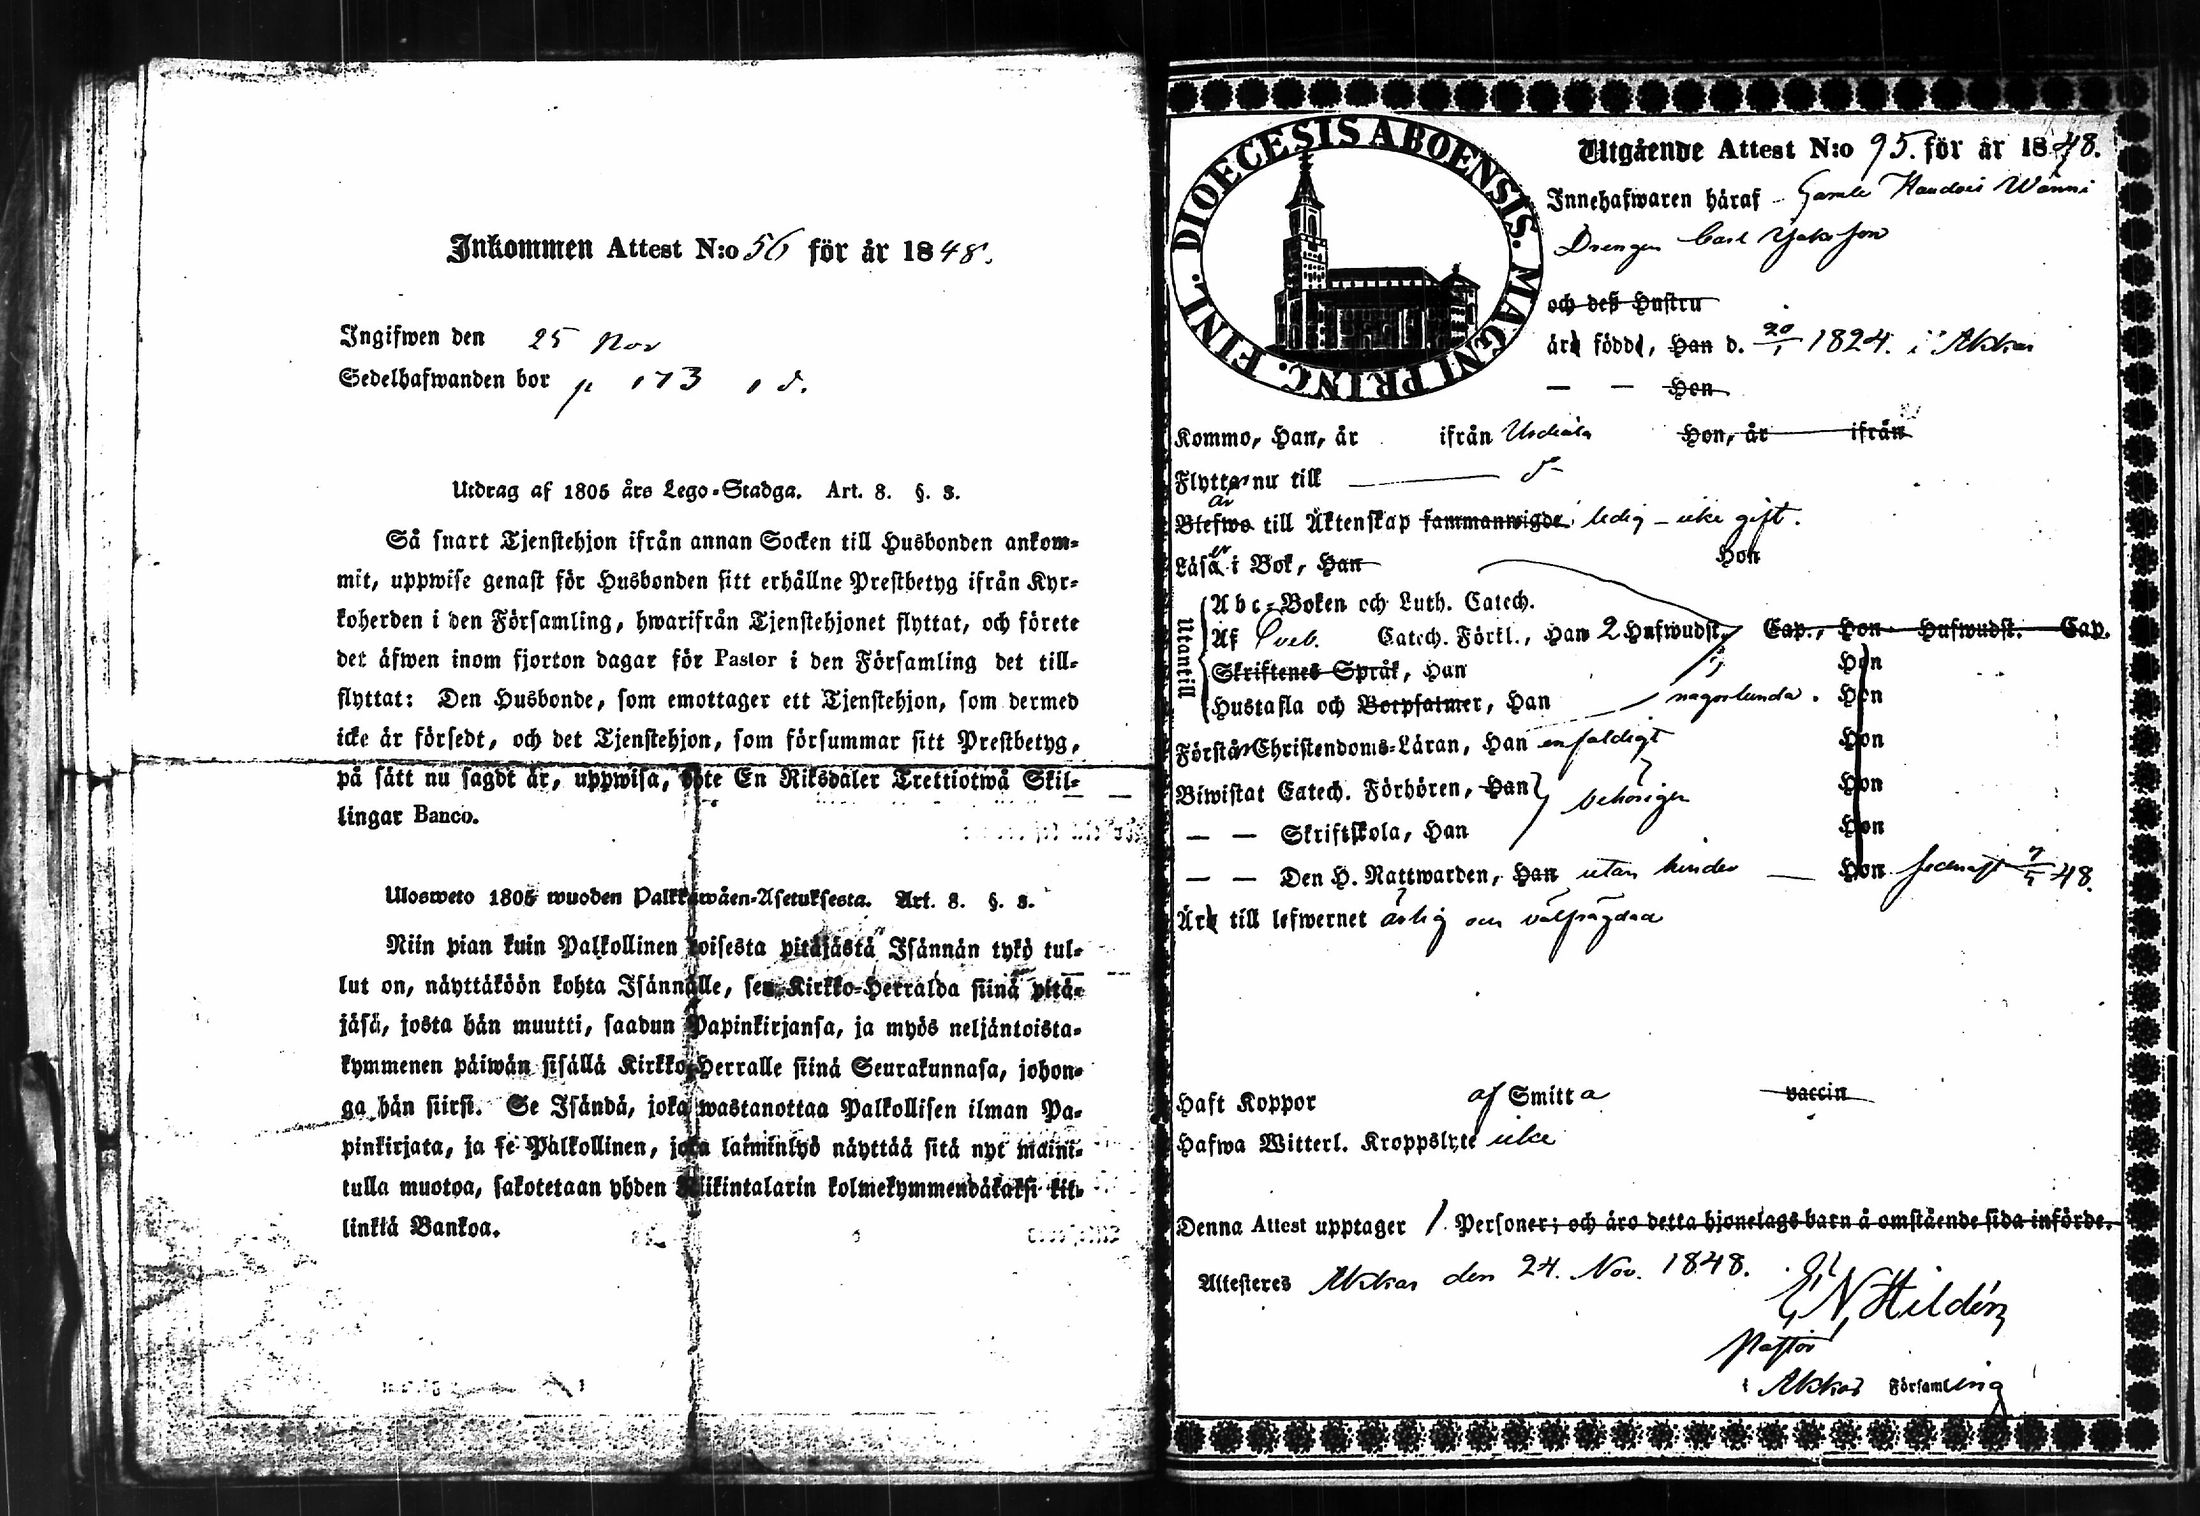 Inkommen Attest N:o 56 för år 1848.
Ingifwen den 25 Nov
Sedelhafwanden bor p 173
Utdrag af 1805 års Lego-Stadga. Art. 8. §. 3.
Så snart Tjenstehjon ifrån annan Socken till Husbonden ankom-
mit, uppwise genast för Husbonden sitt erhållne Prestbetyg ifrån Kyr-
koherden i den Församling, hwarifrån Tjenstehjonet flyttat, och förete
det äfwen inom fjorton dagar för Pastor i den Församling det till-
flyttat: Den Husbonde, som emottager ett Tjenstehjon, som dermed
icke är försedt, och det Tjenstehjon, som försummar sitt Prestbetyg,
på sätt nu sagdt är, uppwisa, böte En Riksdaler Trettiotwå Skil-
lingar Banco.
Ulosweto 1805 wuoden Palkkawäen-Asetuksesta. Art. 8. §. 3.
Niin pian kuin Palkollinen toisesta pitäjästä Isännän tykö tul-
lut on, näyttäköön kohta Isännälle, sen Kirkko-Herralda siinä pitä-
jäsä, josta hän muutti, saadun Papinkirjansa, ja myös neljäntoista-
kymmenen päiwän sisällä Kirkko-Herralle siinä Seurakunnasa, johon-
ga hän siirsi. Se Isändä, joka wastanottaa Palkollisen ilman Pa-
pinkirjata, ja se Palkollinen, joka laiminlyö näyttää sitä nyt maini-
tulla muotoa, sakotetaan yhden Riikintalarin kolmekymmendäkaksi kil-
linkiä Bankoa.
DIOECESIS ABOENSIS. MAGNI PRINC. FINL.
Utgående Attest N:o 95. för år 1848.
Innehafwaren häraf
Drengen Carl
och deß Hustru
äro födde, Han d. 20/1 1824. i Akkas
— — Hon
Kommo, Han, år ifrån Urdiala Hon, år ifrån
Flytta nu till
är
Blefwo till Äktenskap sammanwigde ledig - icke gift.
Läsa i Bok, Han Hon
Utantill
Abc-Boken och Luth. Catech.
Af Sveb. Catech. Förkl., Han 2 Hufwudst. Cap., Hon Hufwudst. Cap.
Skriftenes Språk, Han Hon
Hustafla och Botpsalmer, Han någorlunda. Hon
Förstår Christendoms-Läran, Han enfaldigt Hon
Biwistat Catech. Förhören, Han behörigen Hon
— — Skriftskola, Han Hon
— — Den H. Nattwarden, Han utan hinder — Hon sednast 48.
Äro till lefwernet ärlig och välfrägdad
Haft Koppor af Smitta vaccin
Hafwa Witterl. Kroppslyte icke
Denna Attest upptager 1 Personer; och äro detta hjonelags barn å omstående sida införde.
Attesteres Akkas den 24. Nov. 1848.
E, N, Hildén
Pastor
i Akkas Församling